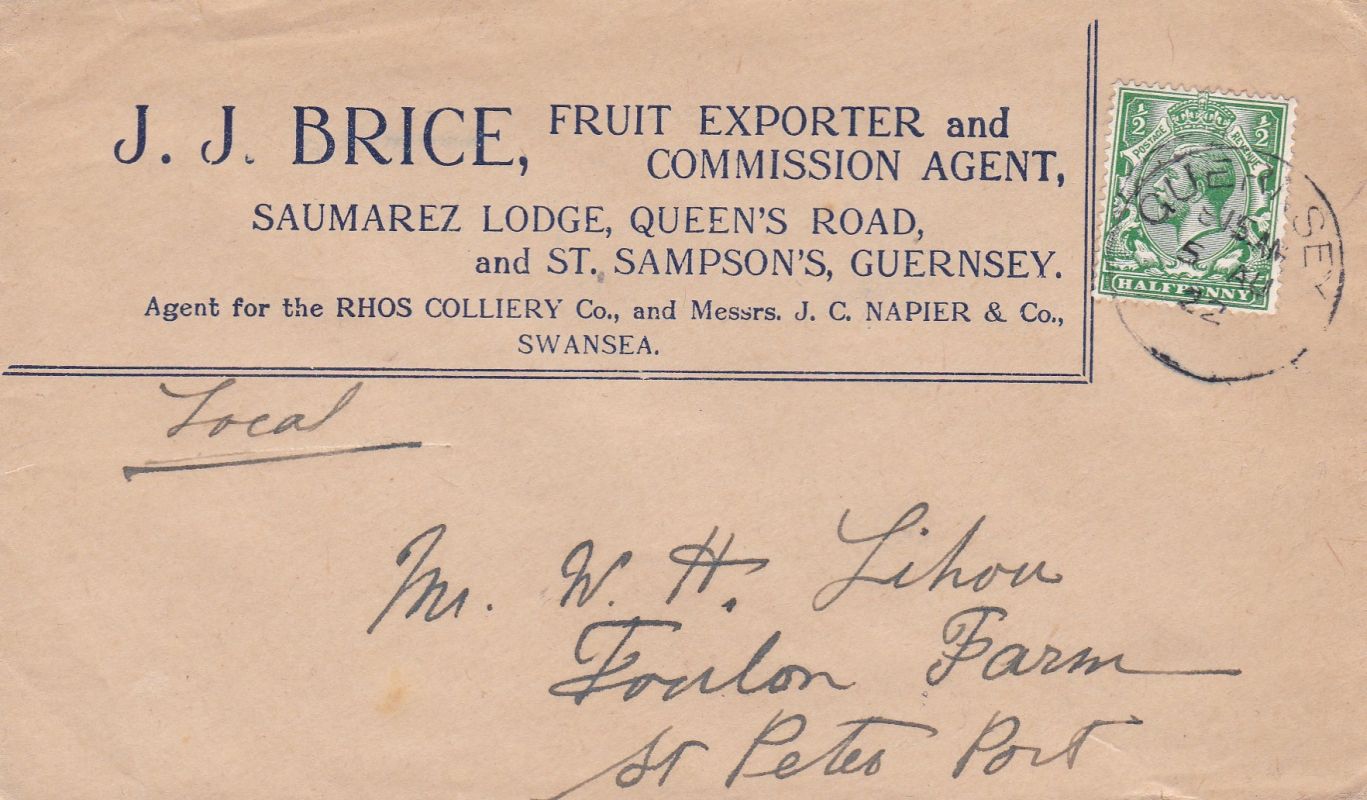 J. J. BRICE, FRUIT EXPORTER and
COMMISSION AGENT,
SAUMAREZ LODGE, QUEEN'S ROAD,
and ST. SAMPSON'S, GUERNSEY.
Agent for the RHOS COLLIERY Co., and Messrs. J. C. NAPIER & Co.,
SWANSEA.
½ ½
POSTAGE REVENUE
HALFPENNY
GUERNSEY
5 AU
22
Local
Mr. W. H. Lihou
Foulon Farm
St Peter Port